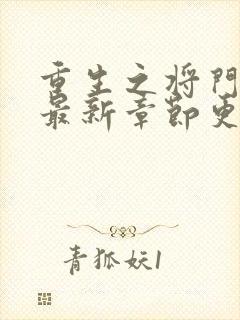 重生之将門
最新章節更
青狐妖1